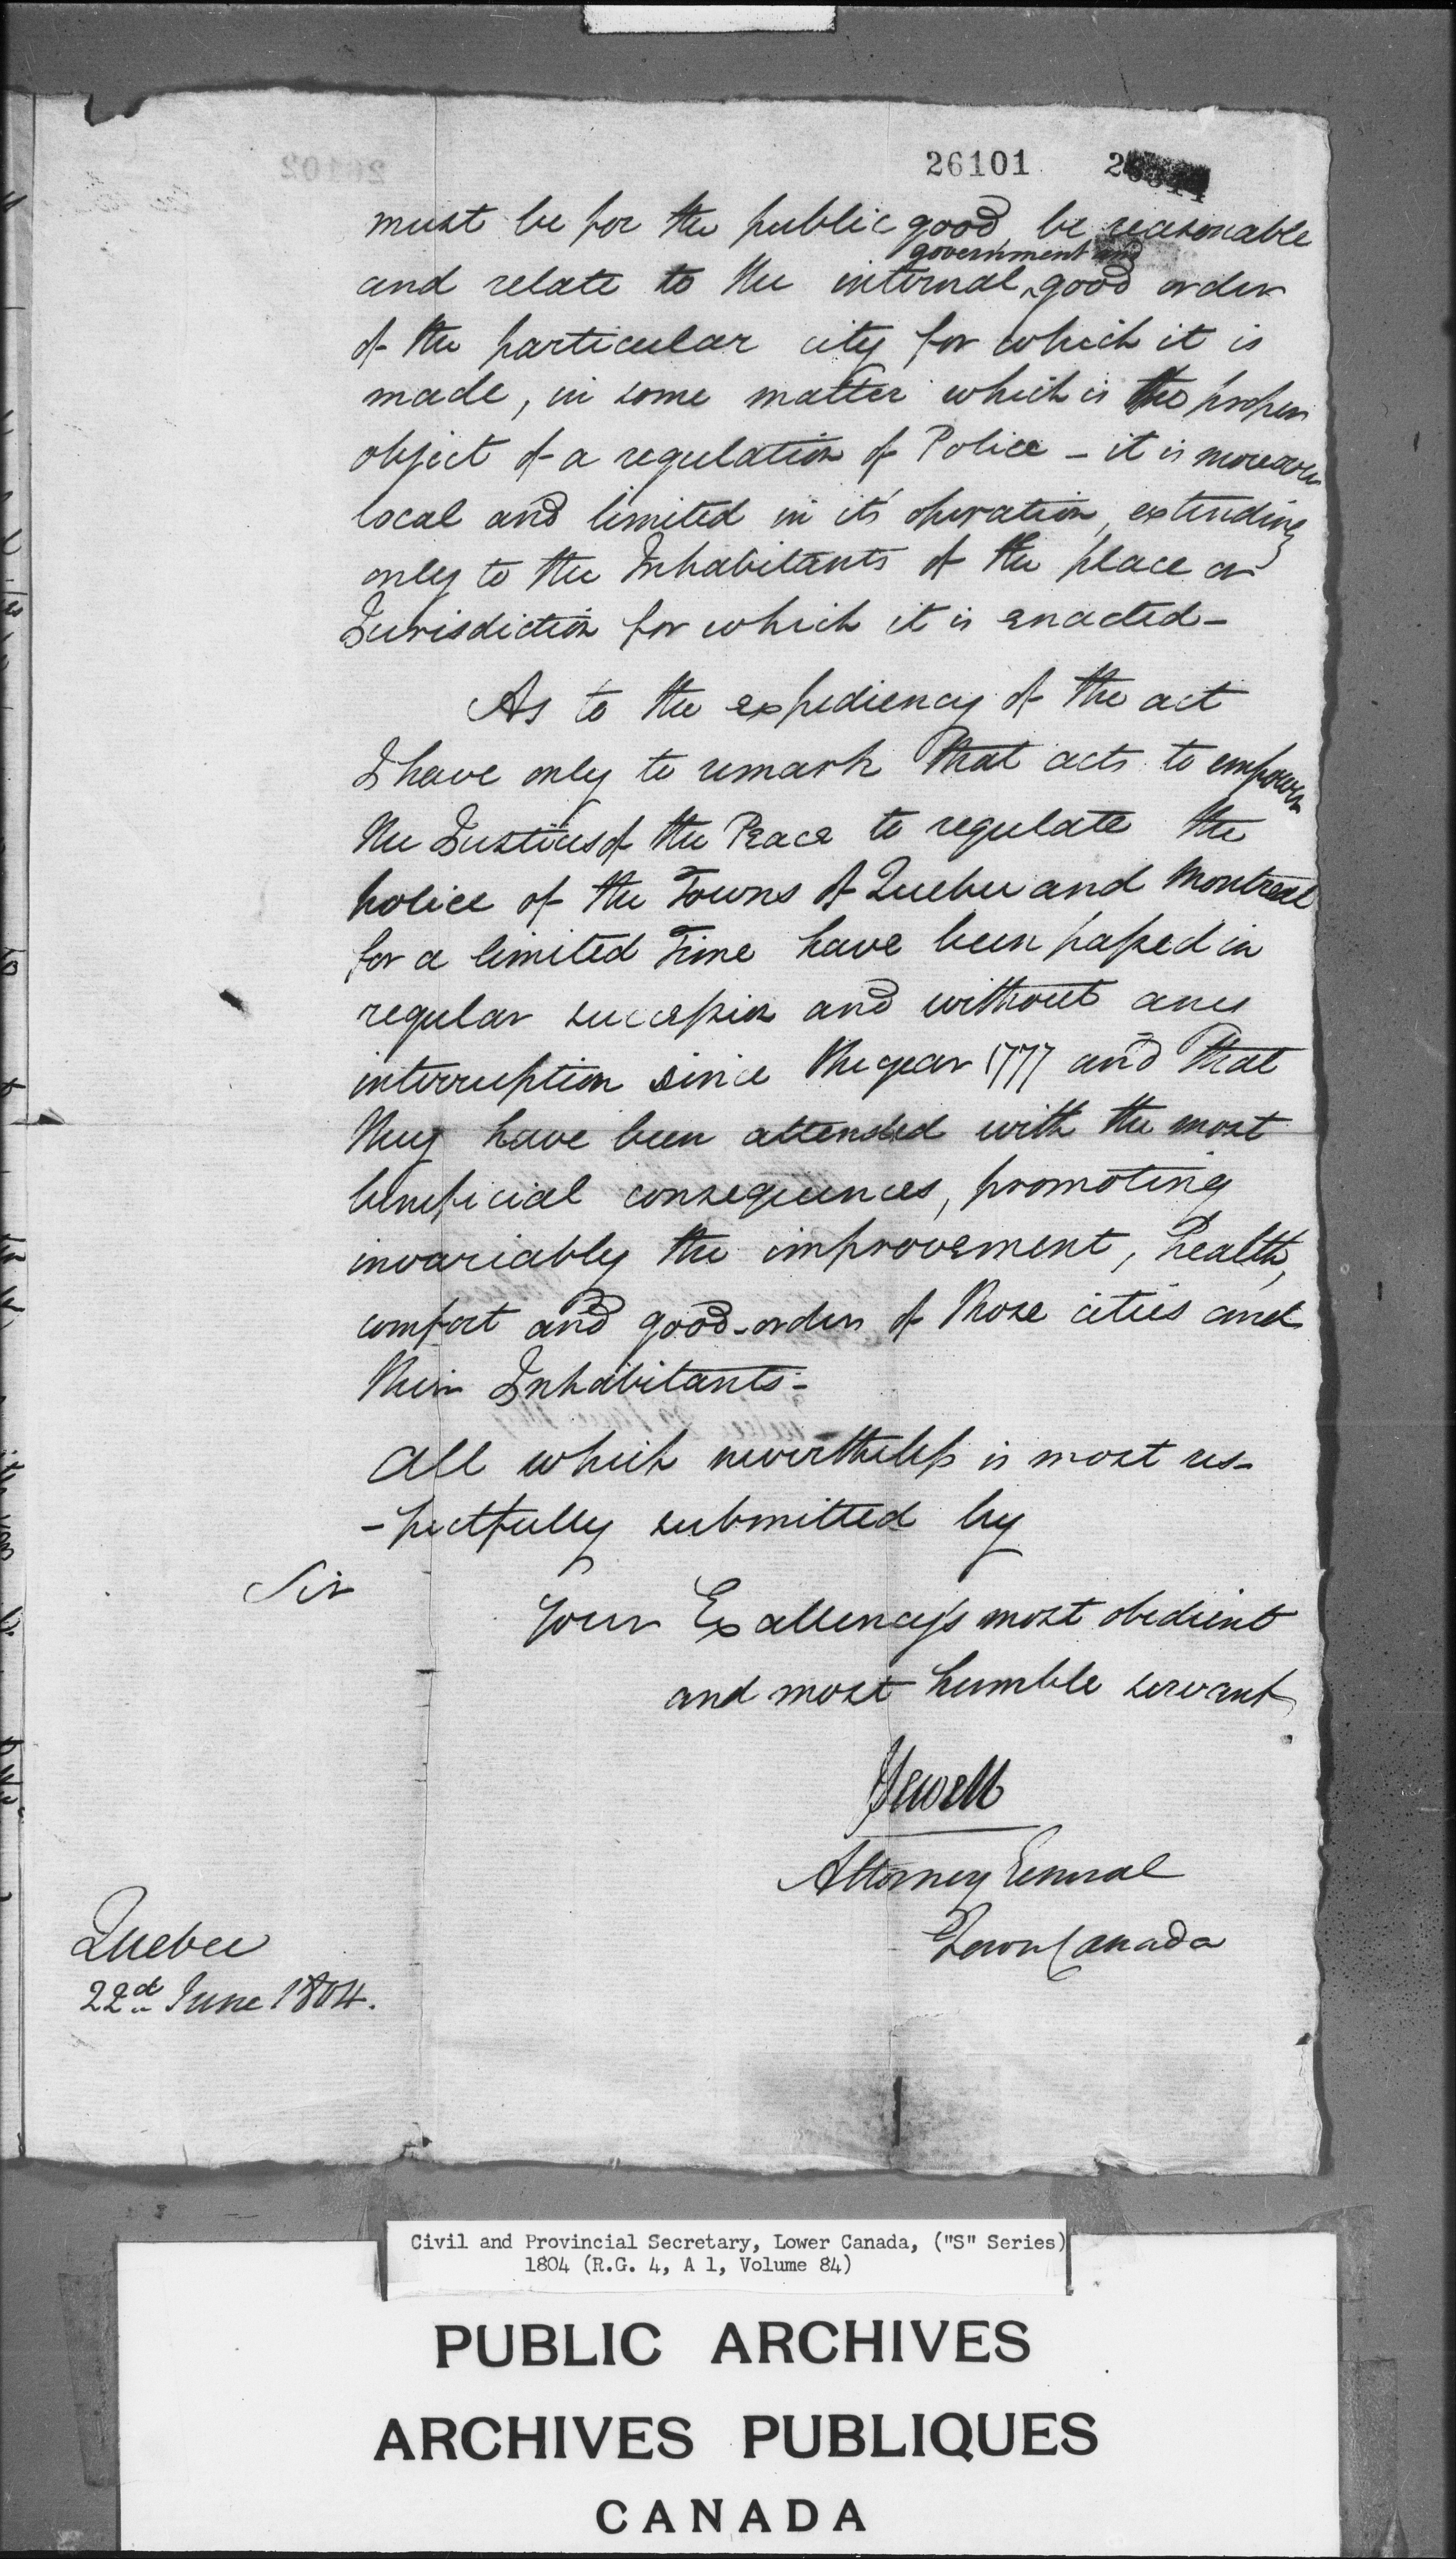 26101
must be for the public good, be reasonable
and relate to the internal government and good order
of the particular city for which it is
made, in some matter which is the proper
object of a regulation of Police – it is moreover
local and limited in it's operation, extending
only to the Inhabitants of the place or
Jurisdiction for which it is enacted –
As to the expediency of the act
I have only to remark that acts to empower
the Justices of the Peace to regulate the
police of the Towns of Quebec and Montreal
for a limited Time have been passed in
regular succession and without any
interruption since the year 1777 and that
they have been attended with the most
beneficial consequences, promoting
invariably the improvement, health,
comfort and good-order of those cities and
their Inhabitants –
All which nevertheless is most res-
-pectfully submitted by
Sir
Your Excellency's most obedient
and most humble servant
J Sewell
Attorney General
Lower Canada
Quebec
22d June 1804.
Civil and Provincial Secretary, Lower Canada, ("S" Series)
1804 (R.G. 4, A 1, Volume 84)
PUBLIC ARCHIVES
ARCHIVES PUBLIQUES
CANADA